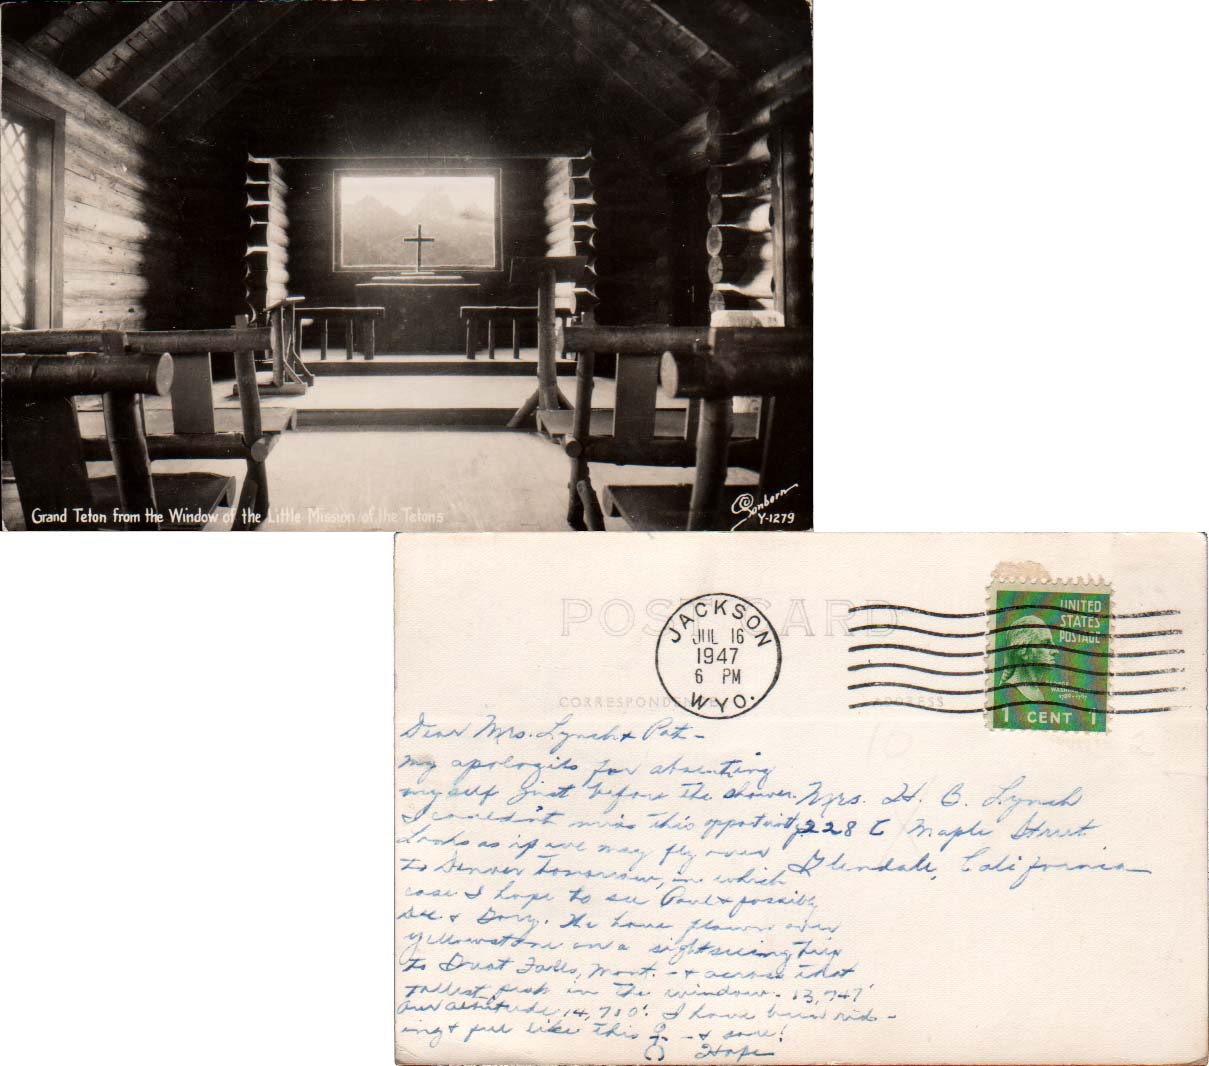 Grand Teton from the Window of the Little Mission of the Tetons
Sanborn
Y-1279
POST CARD
JACKSON
JUL 16
1947
6 PM
WYO.
UNITED
STATES
POSTAGE
1 CENT 1
CORRESPONDENCE
ADDRESS
Dear Mrs. Lynch & Pat –
My apologies for absenting
myself just before the shower.
I couldn't miss this opportunity.
Looks as if we may fly over
to Denver tomorrow, in which
case I hope to see & possibly
& . We have flown over
Yellowstone on a sightseeing trip
to Great Falls, Mont. – & across that
tallest peak in the window – 13,747'
Our altitude 14,710'. I have been rid-
ing & feel like this – & sore!
Hope
Mrs. H. B. Lynch
228 E Maple Street
Glendale, California